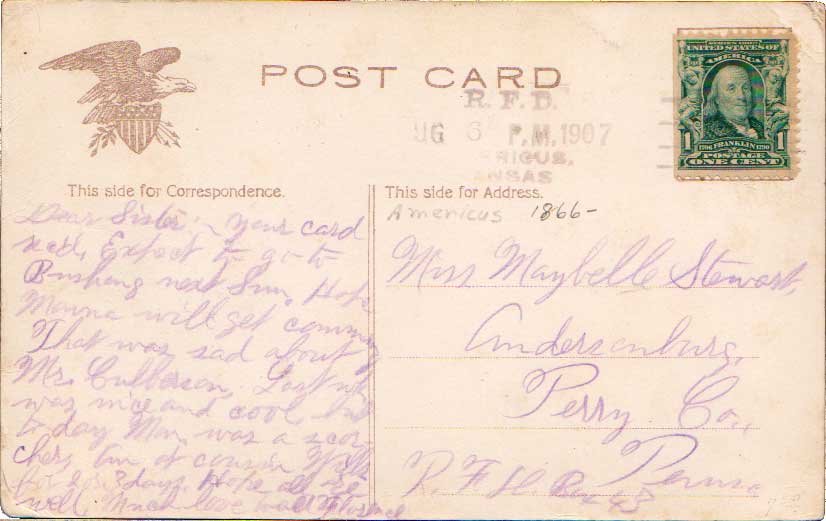 POST CARD
R.F.D.
UG 6 P.M. 1907
RICUS,
ANSAS
SERIES 1902
UNITED STATES OF
AMERICA
1 1
1706 FRANKLIN 1790
POSTAGE
ONE CENT
This side for Correspondence.
This side for Address.
Americus 1866-
Dear Sister:- Your card
recd. Expect to go to
Bushong next Sun. Hope
Mamma will get
That was sad about
Mr. Culberson. Last
was nice and cool but
to day Mon. was a scor-
cher. Am at cousin Will's
for 2 or 3 days. Hope all are
well. Much love
Miss Maybelle Stewart,
Andersonburg,
Perry Co.,
Penna
R. F. D. Box